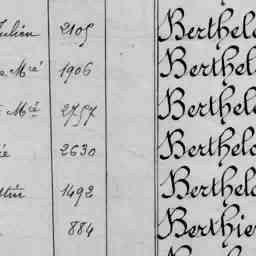 Julien 2105 Berthelo
Mcé 1906 Berthel
Mcé 2757 Berthelo
2630 Berthelo
1492 Berthelo
884 Berthier